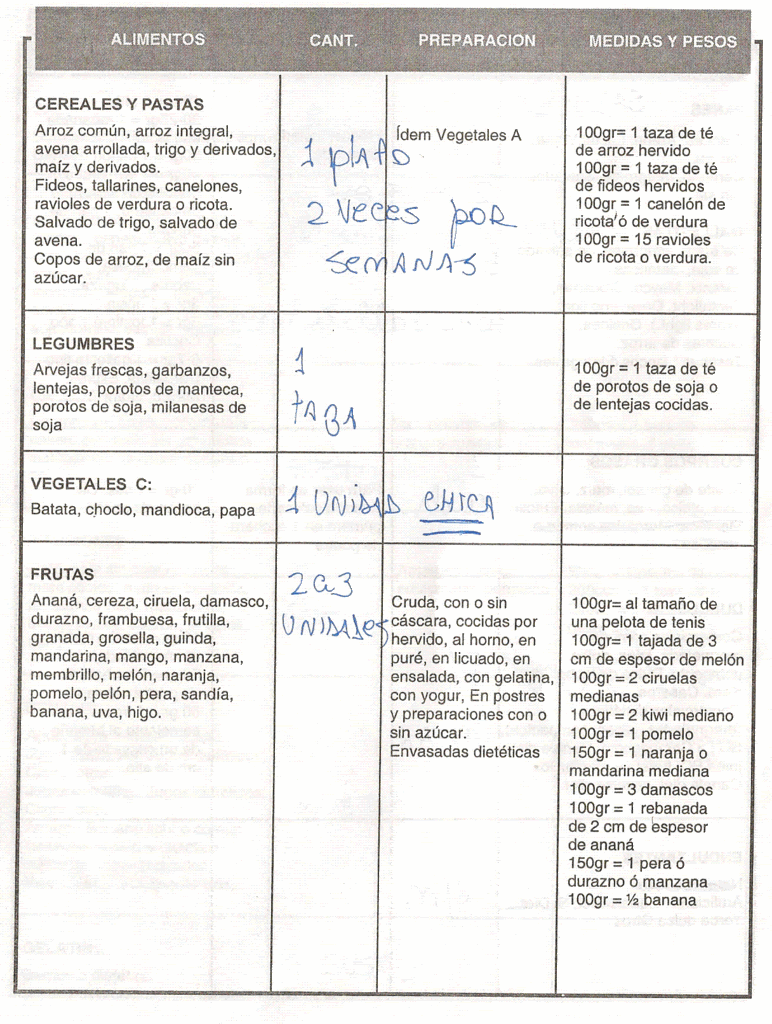 ALIMENTOS CANT. PREPARACION MEDIDAS Y PESOS
CEREALES Y PASTAS
Arroz común, arroz integral,
avena arrollada, trigo y derivados,
maíz y derivados.
Fideos, tallarines, canelones,
ravioles de verdura o ricota.
Salvado de trigo, salvado de
avena.
Copos de arroz, de maíz sin
azúcar.
1 plato
2 Veces por
SEMANAS
Ídem Vegetales A
100gr= 1 taza de té
de arroz hervido
100gr = 1 taza de té
de fideos hervidos
100gr = 1 canelón de
ricota ó de verdura
100gr = 15 ravioles
de ricota o verdura.
LEGUMBRES
Arvejas frescas, garbanzos,
lentejas, porotos de manteca,
porotos de soja, milanesas de
soja
1
tAZA
100gr = 1 taza de té
de porotos de soja o
de lentejas cocidas.
VEGETALES C:
Batata, choclo, mandioca, papa
1 UNIDAD CHICA
FRUTAS
Ananá, cereza, ciruela, damasco,
durazno, frambuesa, frutilla,
granada, grosella, guinda,
mandarina, mango, manzana,
membrillo, melón, naranja,
pomelo, pelón, pera, sandía,
banana, uva, higo.
2 a 3
UNIDADes
Cruda, con o sin
cáscara, cocidas por
hervido, al horno, en
puré, en licuado, en
ensalada, con gelatina,
con yogur, En postres
y preparaciones con o
sin azúcar.
Envasadas dietéticas
100gr= al tamaño de
una pelota de tenis
100gr= 1 tajada de 3
cm de espesor de melón
100gr = 2 ciruelas
medianas
100gr = 2 kiwi mediano
100gr = 1 pomelo
150gr = 1 naranja o
mandarina mediana
100gr = 3 damascos
100gr = 1 rebanada
de 2 cm de espesor
de ananá
150gr = 1 pera ó
durazno ó manzana
100gr = ½ banana